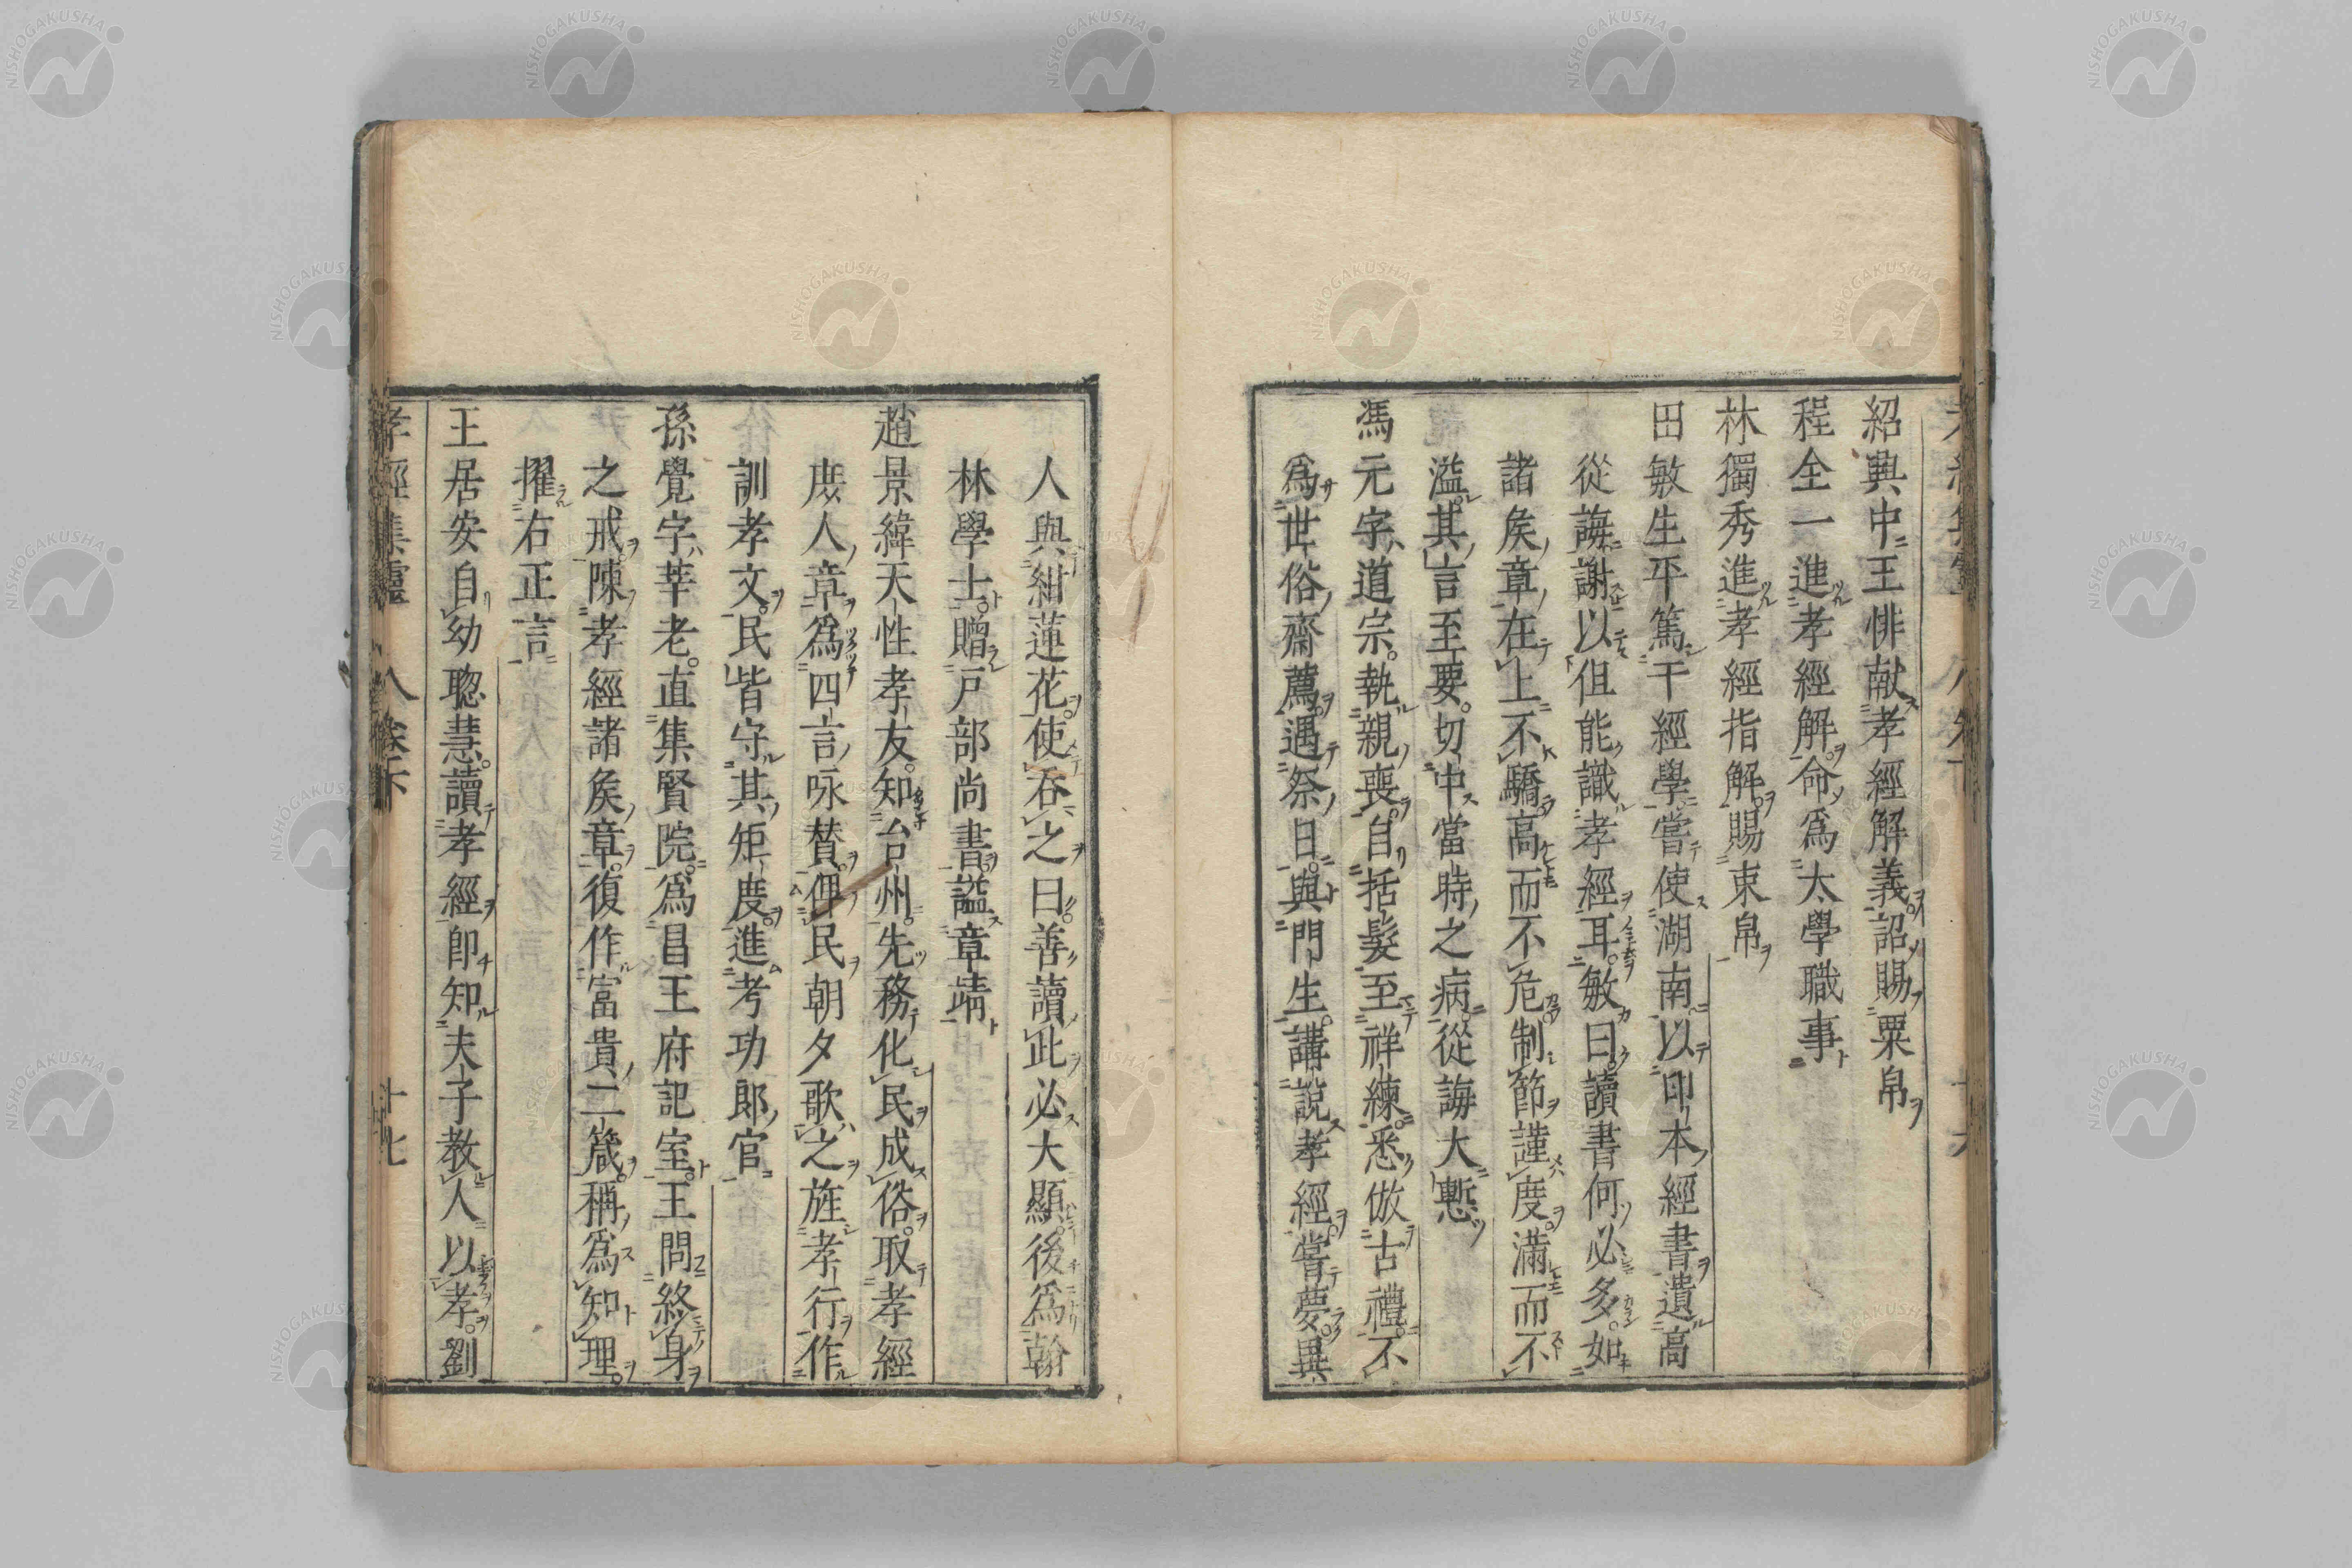 紹興中王悱献孝經解義詔賜粟帛
程全一進孝經解命爲太學職事
林獨秀進孝經指解賜束帛
田敏生平篤于經學嘗使湖南以印本經書遺高
從誨謝以但能識孝經耳敏曰讀書何必多如
諸矦章在上不驕高而不危制節謹度滿而不
溢其言至要切中當時之病從誨大慙
馮元字道宗執親喪自括髮至祥練悉倣古禮不
爲世俗齋薦遇祭日與門生講說孝經嘗夢異
人與紺蓮花使吞之曰善讀此必大顯後爲翰
林學士贈戸部尚書謚章靖
趙景緯天性孝友知台州先務化民成俗取孝經
庻人章爲四言咏賛俾民朝夕歌之旌孝行作
訓孝文民皆守其矩度進考功郎官
孫覺字莘老直集賢院爲昌王府記室王問終身
之戒陳孝經諸矦章復作富貴二箴稱爲知理
擢右正言
王居安自幼聡慧讀孝經卽知夫子教人以孝劉
孝經集靈 八卷下 十七